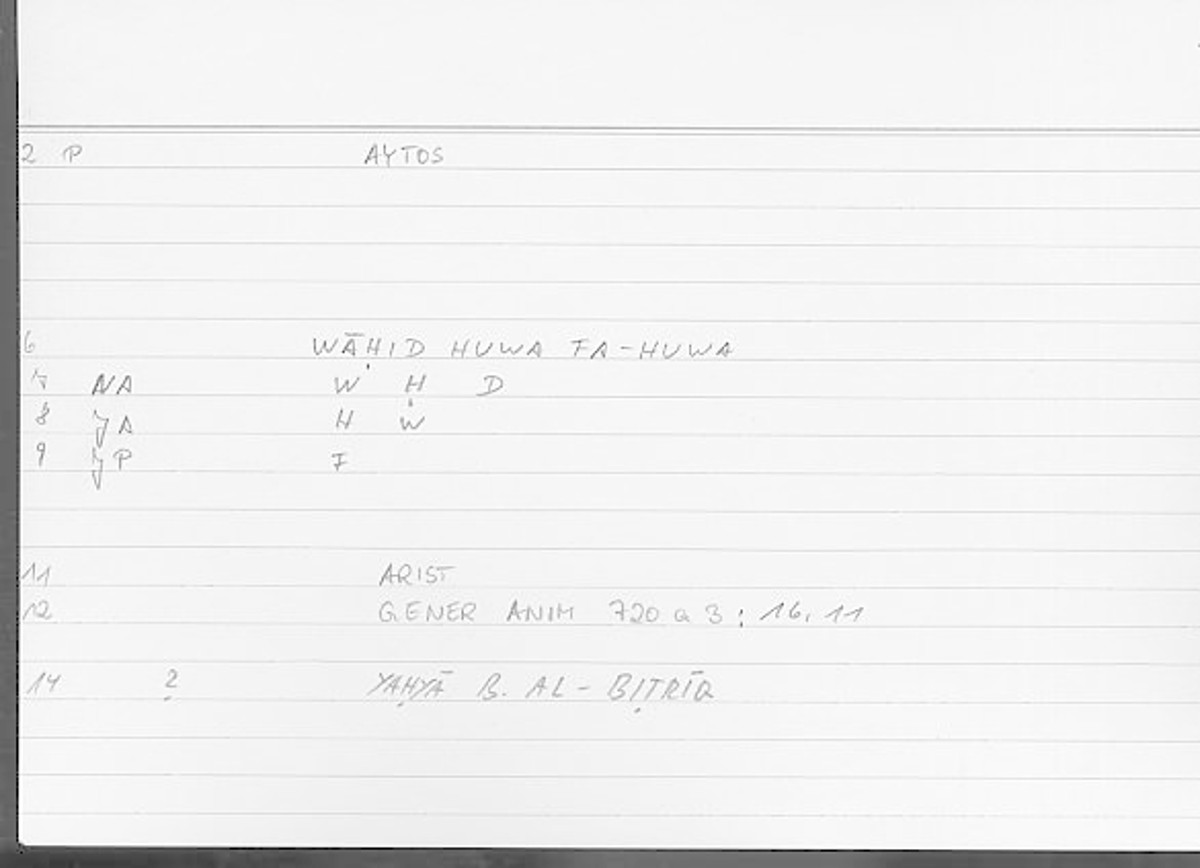 2 P AYTOS
6 WĀḤID HUWA FA-HUWA
7 NA W Ḥ D
8 JA H Ẇ
9 JP F
11 ARIST
12 GENER ANIM 720 a 3 ; 16, 11
14 ? YAḤYĀ B. AL-BIṬRĪQ